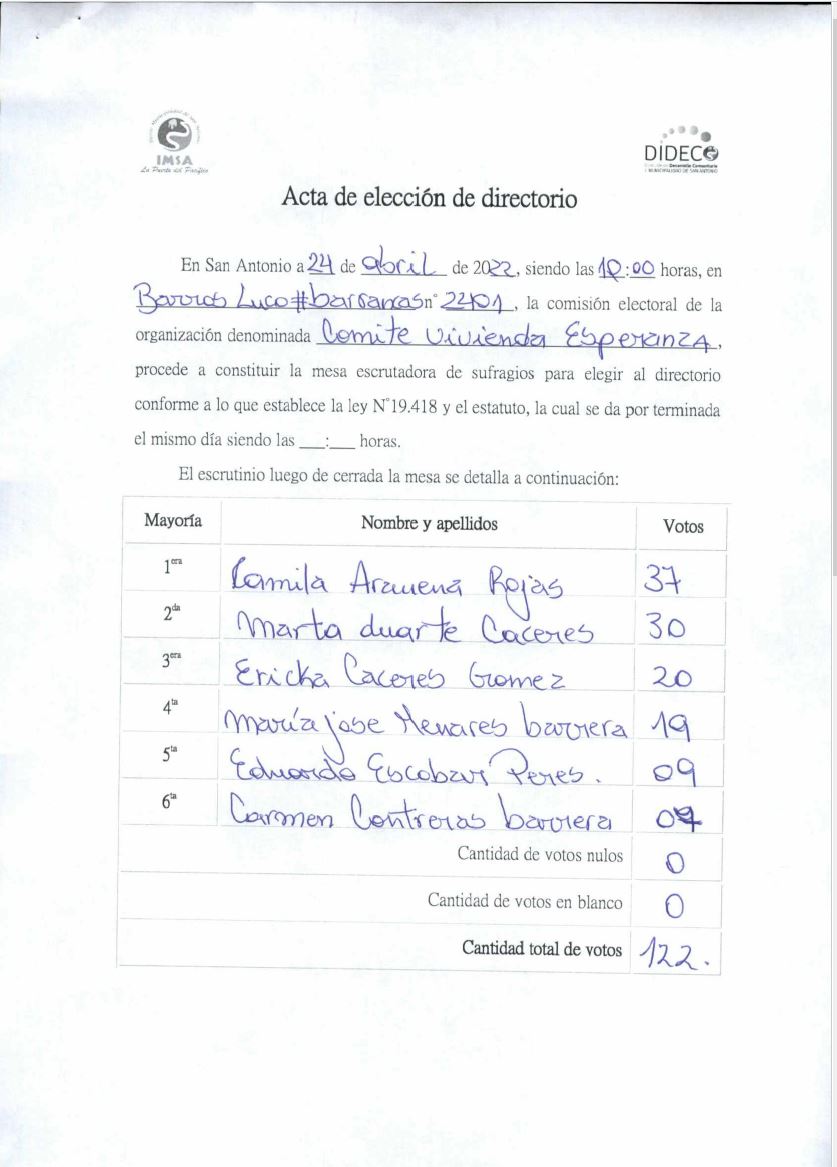 IMSA
La Puerta del Pacífico
DIDECO
Desarrollo Comunitario
I. MUNICIPALIDAD DE SAN ANTONIO
Acta de elección de directorio
En San Antonio a 24 de abril de 2022, siendo las 10:00 horas, en
Barros Luco#barrancas n° 2401, la comisión electoral de la
organización denominada Comite vivienda EsperanzA,
procede a constituir la mesa escrutadora de sufragios para elegir al directorio
conforme a lo que establece la ley N°19.418 y el estatuto, la cual se da por terminada
el mismo día siendo las ___:___ horas.
El escrutinio luego de cerrada la mesa se detalla a continuación:
Mayoría Nombre y apellidos Votos
1era Camila Aravena Rojas 37
2da Marta duarte Caceres 30
3era Ericka Caceres Gromez 20
4ta María jose Menares barrera 19
5ta Eduardo Escobar Peres. 09
6ta Carmen Contreras barrera 07
Cantidad de votos nulos 0
Cantidad de votos en blanco 0
Cantidad total de votos 122.